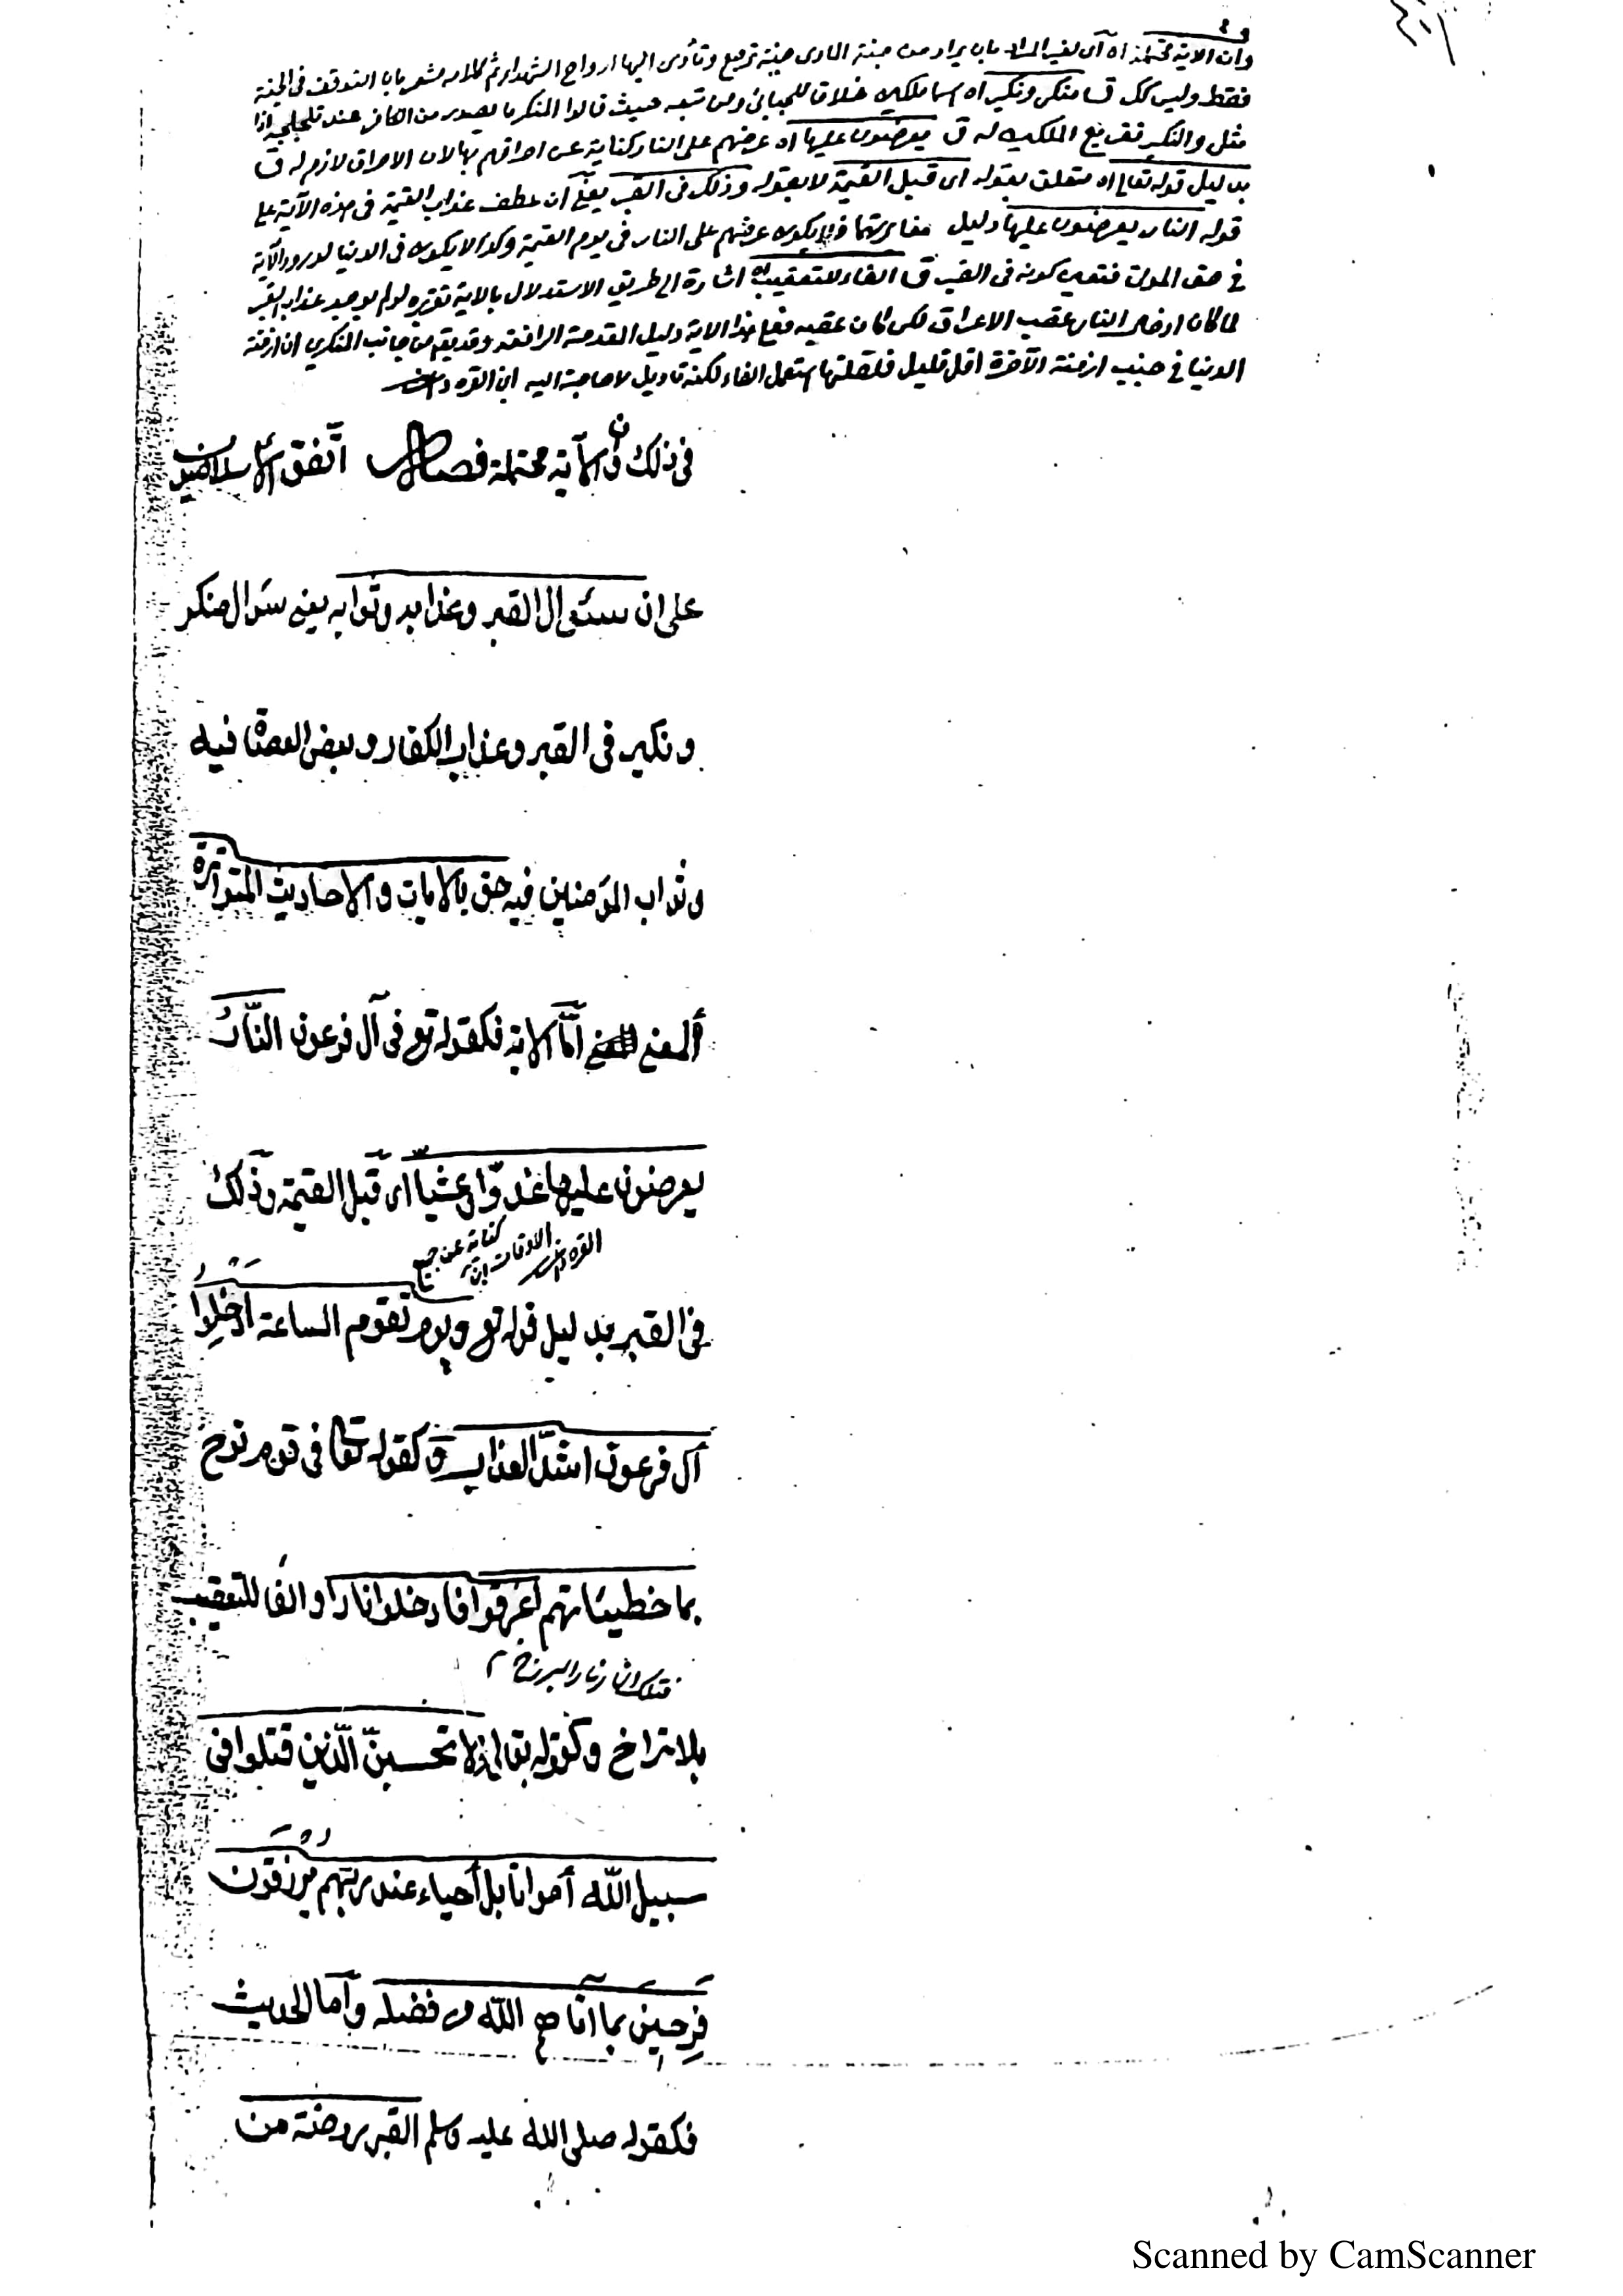 وان الاية محتملة اه أى لغير المراد بان يراد من جنة المأوى جنة ترجع وتأوى اليها ارواح الشهداء ثم كلامه مشعر بابا التوقف فى الجنة
فقط وليس كك ق منكر ونكير اه اسما ملكين خلافا للجبائى ومن تبعه حيث قالوا المنكر ما يصدر من الكافر عند تلجلجه اذا
سئل والنكير تقريع الملكين له ق يعرضون عليها اه عرضهم على النار كناية عن احراقهم بها لان الاحراق لازم له ق
بدليل قوله تعالى اه متعلق بقوله اى قبل القيمة لا بقوله وذلك فى القبر يعنى أن عطف عذاب القيمة فى هذه الآية على
قوله النار يعرضون عليها دليل مغايرتهما فلا يكون عرضهم على النار فى يوم القيمة وكذا لا يكون فى الدنيا لورود الآية
فى حق الموتى فتعين كونه فى القبر ق الفاء للتعقيب اه اشارة الى طريق الاستدلال بالاية تقريره لو لم يوجد عذاب القبر
لما كان ادخال النار عقب الاغراق لكن كان عقبه فعلى هذا الاية دليل المقدمة الرافعة وقد يقع من جانب المنكرين ان ازمنة
الدنيا فى جنب ازمنة الآخرة اقل قليل فلقلتها استعمل الفاء لكنه تأويل لا حاجة اليه ابن القره داغى
فى ذلك وان الآية محتملة فصل اتفق الاسلاميون
على ان سئوال القبر وعذابه وثوابه يعنى سؤال منكر
ونكير فى القبر وعذاب الكفار وبعض العصاة فيه
وثواب المؤمنين فيه حق بالايات والاحاديث المتواترة
ألمعنى أما الاية فكقوله تع فى آل فرعون النار
يعرضون عليها غدوا وعشيا اى قبل القيمة وذلك
كناية عن جميع
الاوقات ابن
القره داغى
فى القبر بدليل قوله تع ويوم تقوم الساعة ادخلوا
آل فرعون اشد العذاب وكقوله تعالى فى قوم نوح
بما خطيئاتهم اغرقوا فادخلوا نارا والفا للتعقيب
فتلك ان نار البرزخ م
بلا تراخ وكقوله تعالى ولا تحسبن الذين قتلوا فى
سبيل الله أمواتا بل أحياء عند ربهم يرزقون
فرحين بما اتاهم الله من فضله وأما الحديث
فكقوله صلى الله عليه وسلم القبر روضة من
Scanned by CamScanner